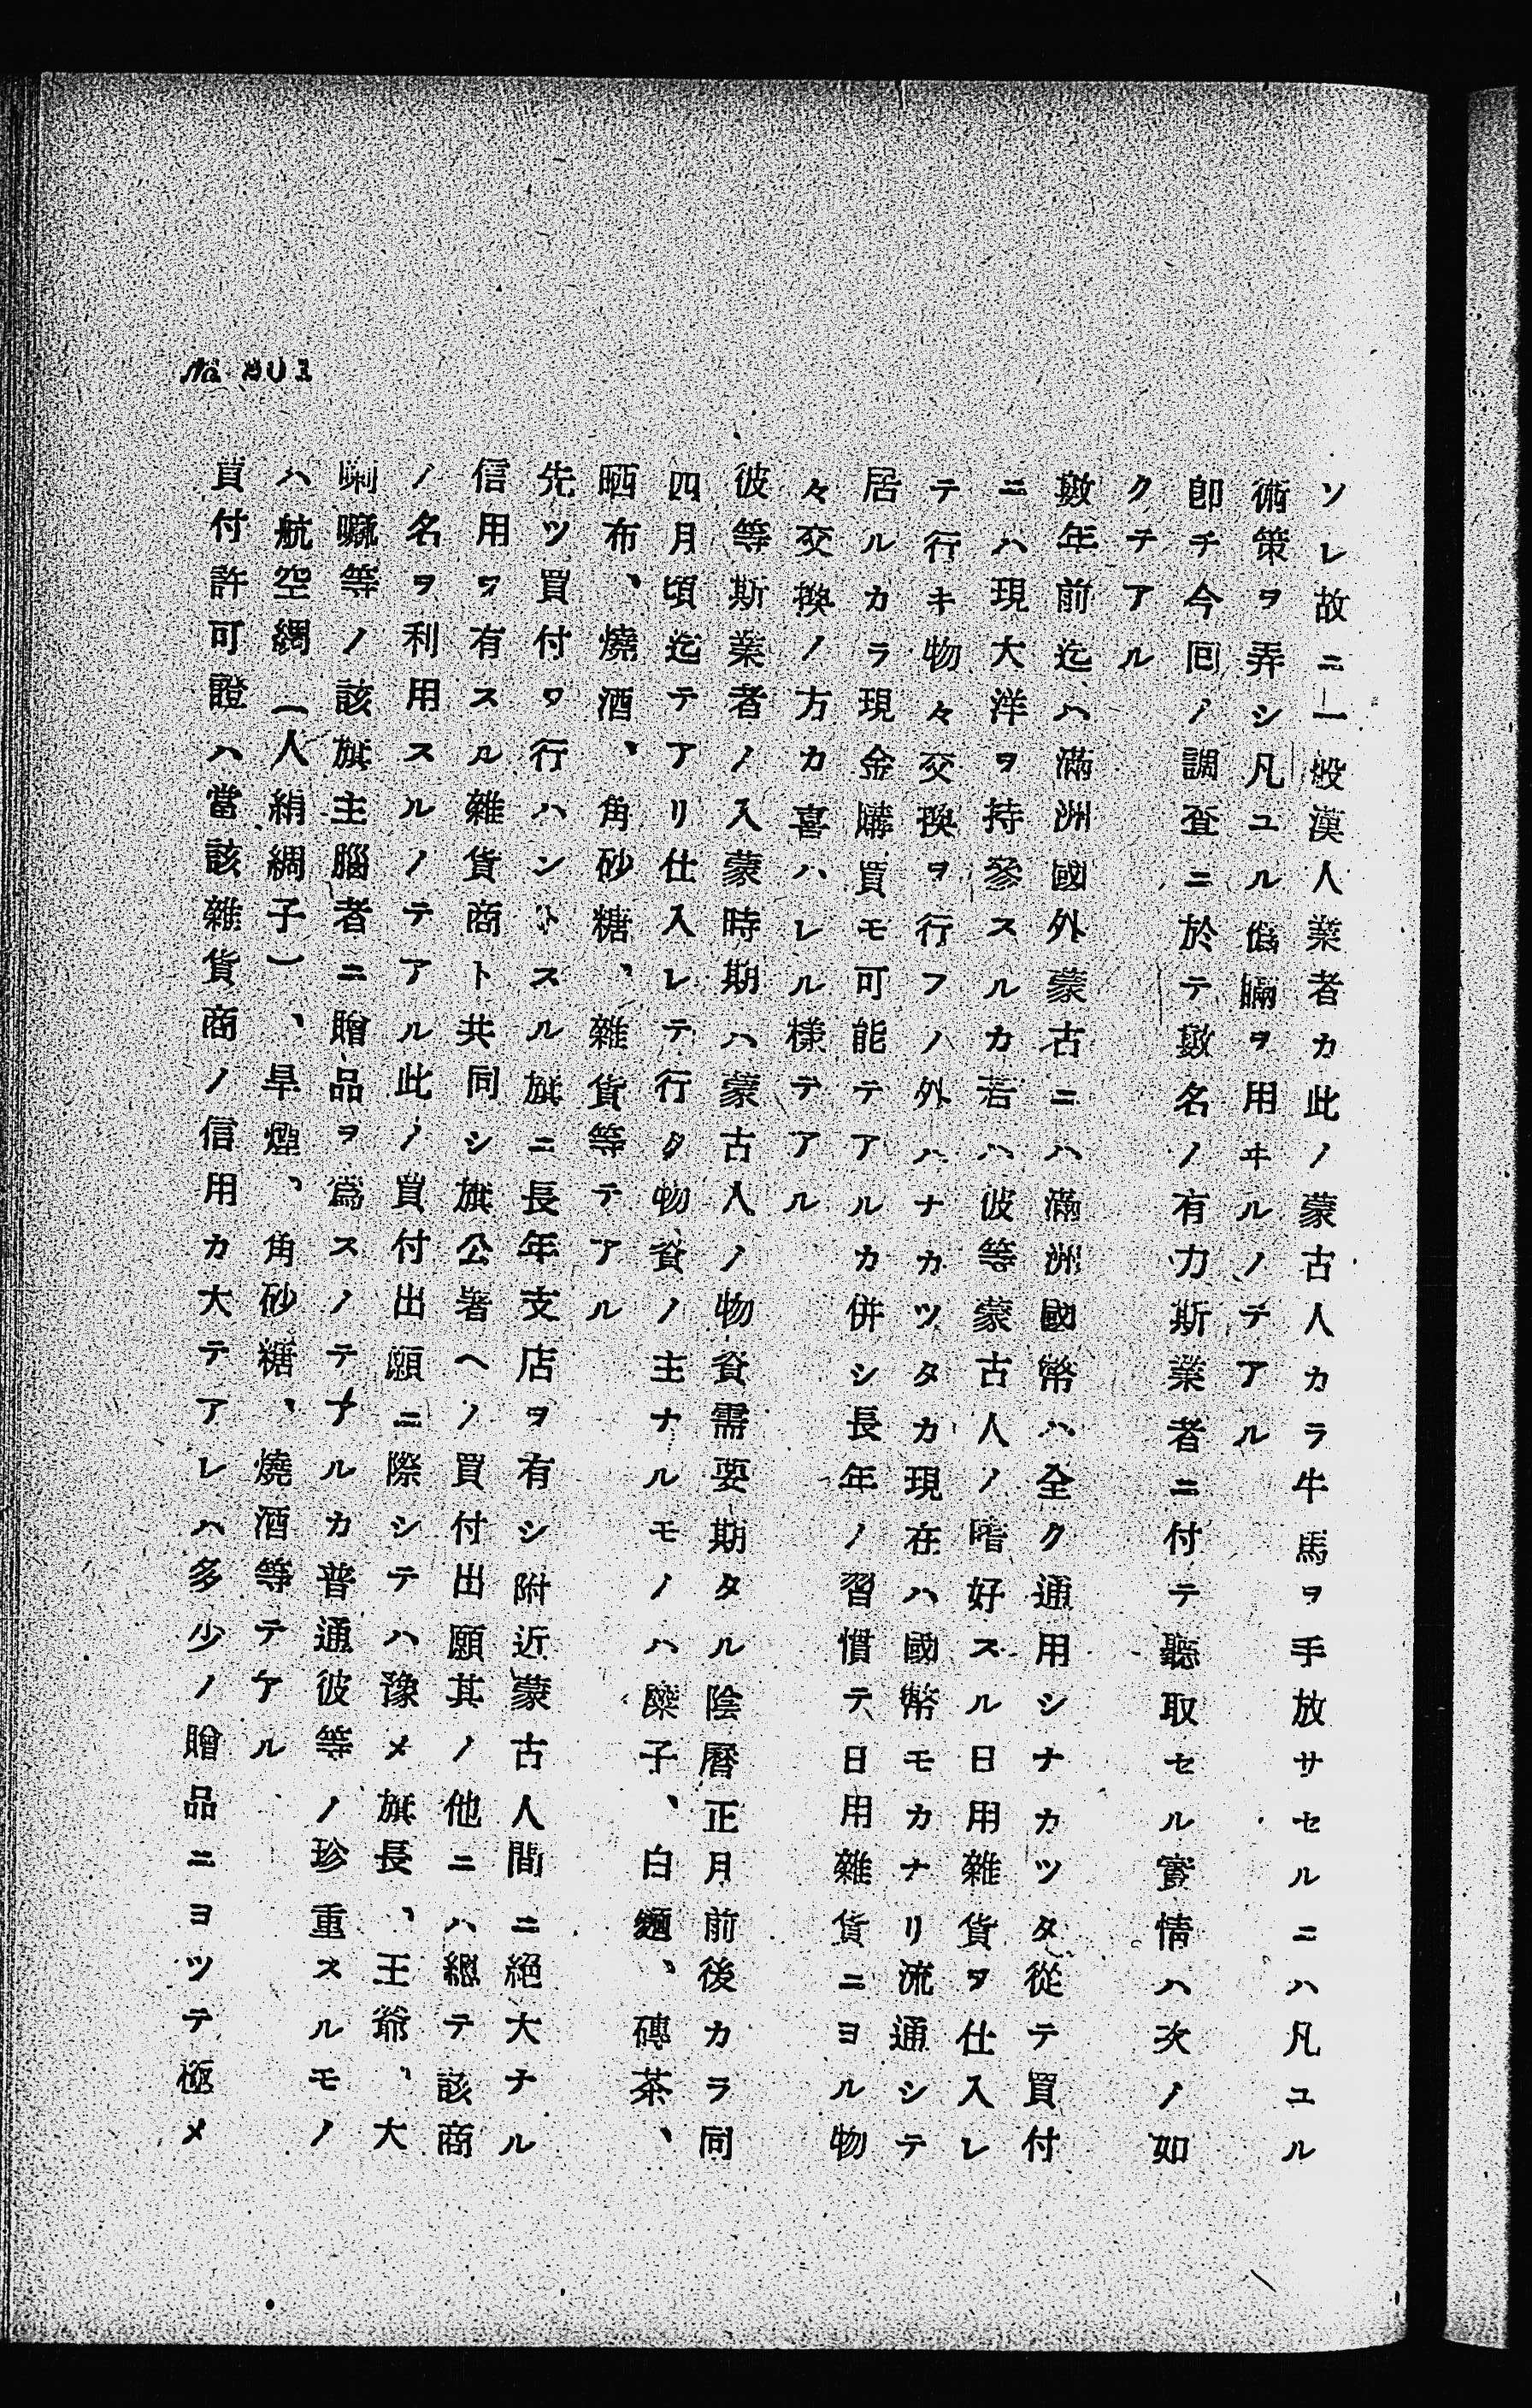 ソレ故ニ一般漢人業者カ此ノ蒙古人カラ牛馬ヲ手放サセルニハ凡ユル
術策ヲ弄シ凡ユル僞瞞ヲ用ヰルノテアル
卽チ今囘ノ調査ニ於テ數名ノ有力斯業者ニ付テ聽取セル實情ハ次ノ如
クテアル
數年前迄ハ滿洲國外蒙古ニハ滿洲國幣ハ全ク通用シナカツタ從テ買付
ニハ現大洋ヲ持參スルカ若ハ彼等蒙古人ノ嗜好スル日用雜貨ヲ仕入レ
テ行キ物々交換ヲ行フノ外ハナカツタカ現在ハ國幣モカナリ流通シテ
居ルカラ現金購買モ可能テアルカ併シ長年ノ習慣テ日用雜貨ニヨル物
々交換ノ方カ喜ハレル樣テアル
彼等斯業者ノ入蒙時期ハ蒙古人ノ物資需要期タル陰曆正月前後カラ同
四月頃迄テアリ仕入レテ行タ物資ノ主ナルモノハ糜子、白麵、磚茶、
晒布、燒酒、角砂糖、雜貨等テアル
先ツ買付ヲ行ハントスル旗ニ長年支店ヲ有シ附近蒙古人間ニ絕大ナル
信用ヲ有スル雜貨商ト共同シ旗公署ヘノ買付出願其ノ他ニハ總テ該商
ノ名ヲ利用スルノテアル此ノ買付出願ニ際シテハ豫メ旗長、王爺、大
喇嘛等ノ該旗主腦者ニ贈品ヲ爲スノテアルカ普通彼等ノ珍重スルモノ
ハ航空綢（人絹綢子）、旱煙、角砂糖、燒酒等テアル
買付許可證ハ當該雜貨商ノ信用カ大テアレハ多少ノ贈品ニヨツテ極メ